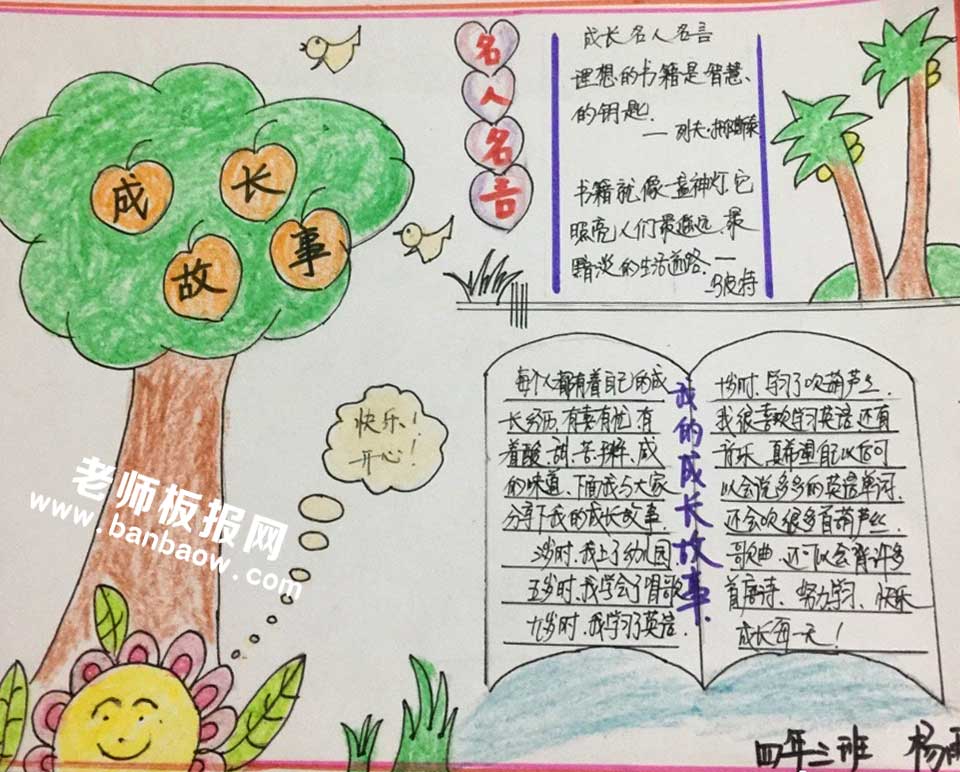 成长
故事
名人名言
成长名人名言
理想的书籍是智慧
的钥匙.
— 列夫·托尔斯泰
书籍就像一盏神灯,它
照亮人们最遥远、最
黯淡的生活道路. —
乌皮特
快乐!
开心!
老师板报网
www.banbaow.com
我的成长故事
每个人都有着自己的成
长经历,有喜有忧,有
着酸、甜、苦、辣、咸
的味道、下面我与大家
分享下我的成长故事.
3岁时、我上了幼儿园
五岁时、我学会了唱歌
九岁时、我学习了英语.
十岁时、学习了吹葫芦丝
我很喜欢学习英语还有
音乐、真希望自己以后可
以会说多多的英语单词.
还会吹很多首葫芦丝
歌曲、还可以会背许多
首唐诗、努力学习、快乐
成长每一天!
四年三班 杨雨